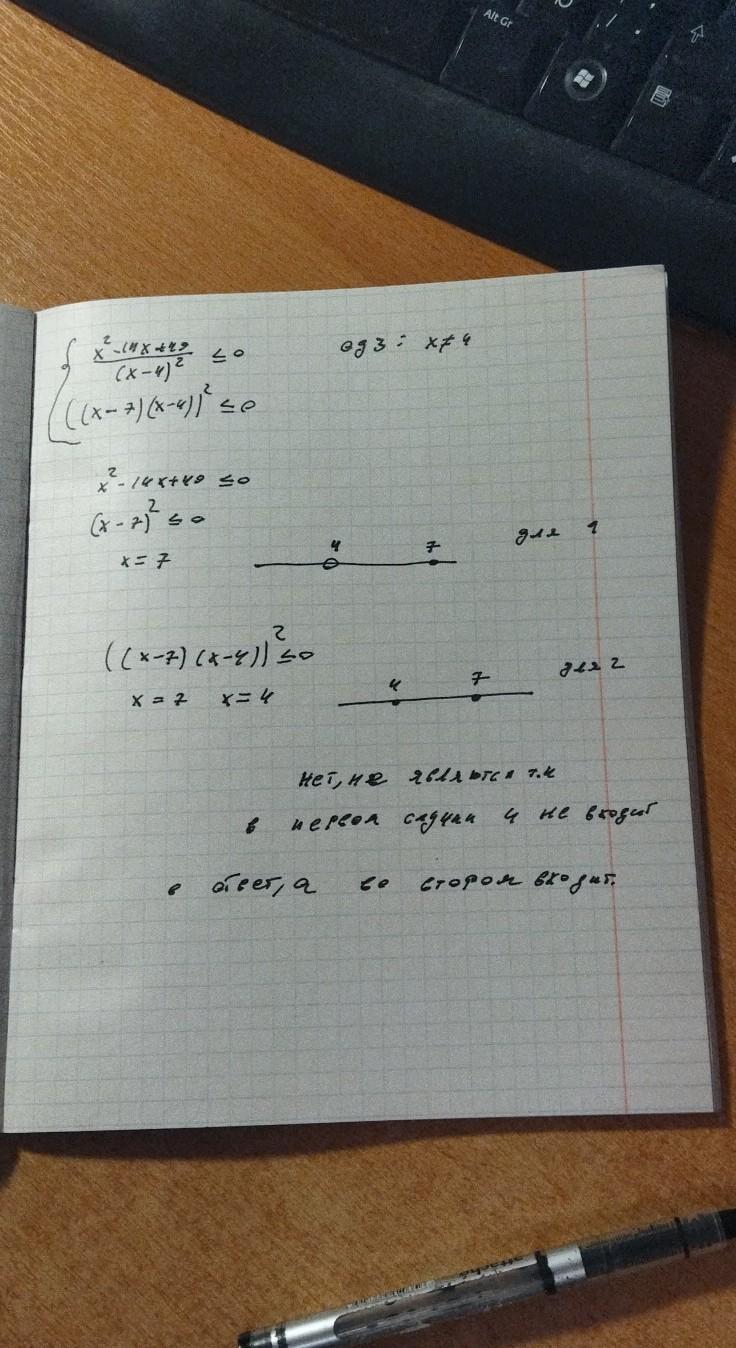 Alt Gr
x² - 14x + 49 / (x - 4)² ≤ 0
одз: x ≠ 4
((x - 7)(x - 4))² ≤ 0
x² - 14x + 49 ≤ 0
(x - 7)² ≤ 0
x = 7
4 7
для 1
((x - 7)(x - 4))² ≤ 0
x = 7 x = 4
4 7
для 2
нет, не являются т.к
в первом случаи 4 не входит
в ответ, а во втором входит.
attaché